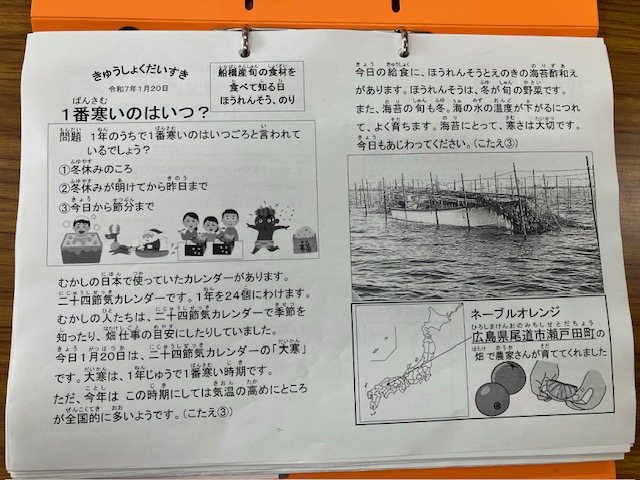 きゅうしょくだいすき
令和7年1月20日
船橋産旬の食材を
食べて知る日
ほうれんそう、のり
1番寒いのはいつ?
問題 1年のうちで1番寒いのはいつごろと言われて
いるでしょう?
①冬休みのころ
②冬休みが明けてから昨日まで
③今日から節分まで
むかしの日本で使っていたカレンダーがあります。
二十四節気カレンダーです。1年を24個にわけます。
むかしの人たちは、二十四節気カレンダーで季節を
知ったり、畑仕事の目安にしたりしていました。
今日1月20日は、二十四節気カレンダーの「大寒」
です。大寒は、1年じゅうで1番寒い時期です。
ただ、今年は この時期にしては気温の高めにところ
が全国的に多いようです。(こたえ③)
今日の給食に、ほうれんそうとえのきの海苔酢和え
があります。ほうれんそうは、冬が旬の野菜です。
また、海苔の旬も冬。海の水の温度が下がるにつれ
て、よく育ちます。海苔にとって、寒さは大切です。
今日もあじわってください。(こたえ③)
ネーブルオレンジ
広島県尾道市瀬戸田町の
畑で農家さんが育ててくれました